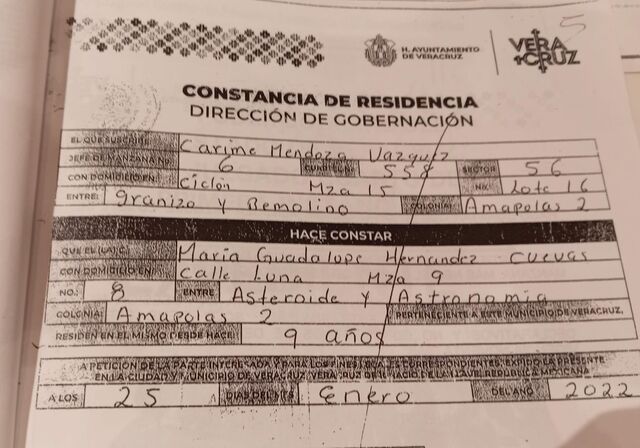 5
H. AYUNTAMIENTO
DE VERACRUZ
VERA
CRUZ
CONSTANCIA DE RESIDENCIA
DIRECCIÓN DE GOBERNACIÓN
EL QUE SUSCRIBE Carime Mendoza Vazquez
JEFE DE MANZANA No. 6 CUARTEL No. 558 SECTOR 56
CON DOMICILIO EN: Ciclón Mza 15 No. Lote 16
ENTRE: granizo y Remolino COLONIA: Amapolas 2
HACE CONSTAR
QUE EL (LA) C. Maria Guadalupe Hernandez Cuevas
CON DOMICILIO EN: Calle Luna Mza 9
NO.: 8 ENTRE Asteroide y Astronomia
COLONIA: Amapolas 2 PERTENECIENTE A ESTE MUNICIPIO DE VERACRUZ,
RESIDEN EN EL MISMO DESDE HACE: 9 años
A PETICIÓN DE LA PARTE INTERESADA Y PARA LOS FINES LEGALES CORRESPONDIENTES, EXPIDO LA PRESENTE
EN LA CIUDAD Y MUNICIPIO DE VERACRUZ, VERACRUZ DE IGNACIO DE LA LLAVE, REPÚBLICA MEXICANA
A LOS 25 DIAS DEL MES Enero DEL AÑO 2022